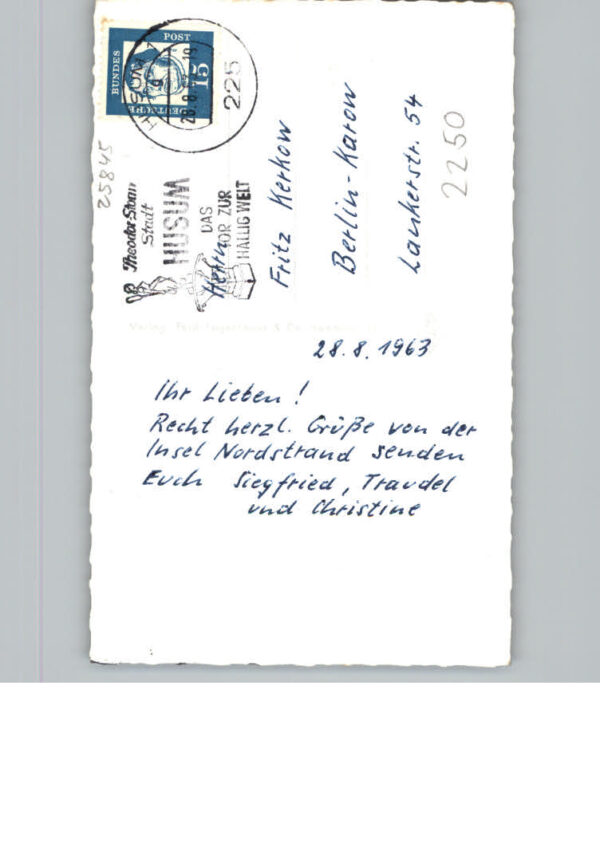 DEUTSCHE
BUNDES
POST
15
HUSUM
28.8.
-18
225
25845
Theodor-Storm
Stadt
HUSUM
DAS
TOR ZUR
HALLIGWELT
Herrn
Fritz Kerkow
Berlin-Karow
Lankerstr. 54
2250
28.8.1963
Ihr Lieben!
Recht herzl. Grüße von der
Insel Nordstrand senden
Euch Siegfried, Traudel
und Christine